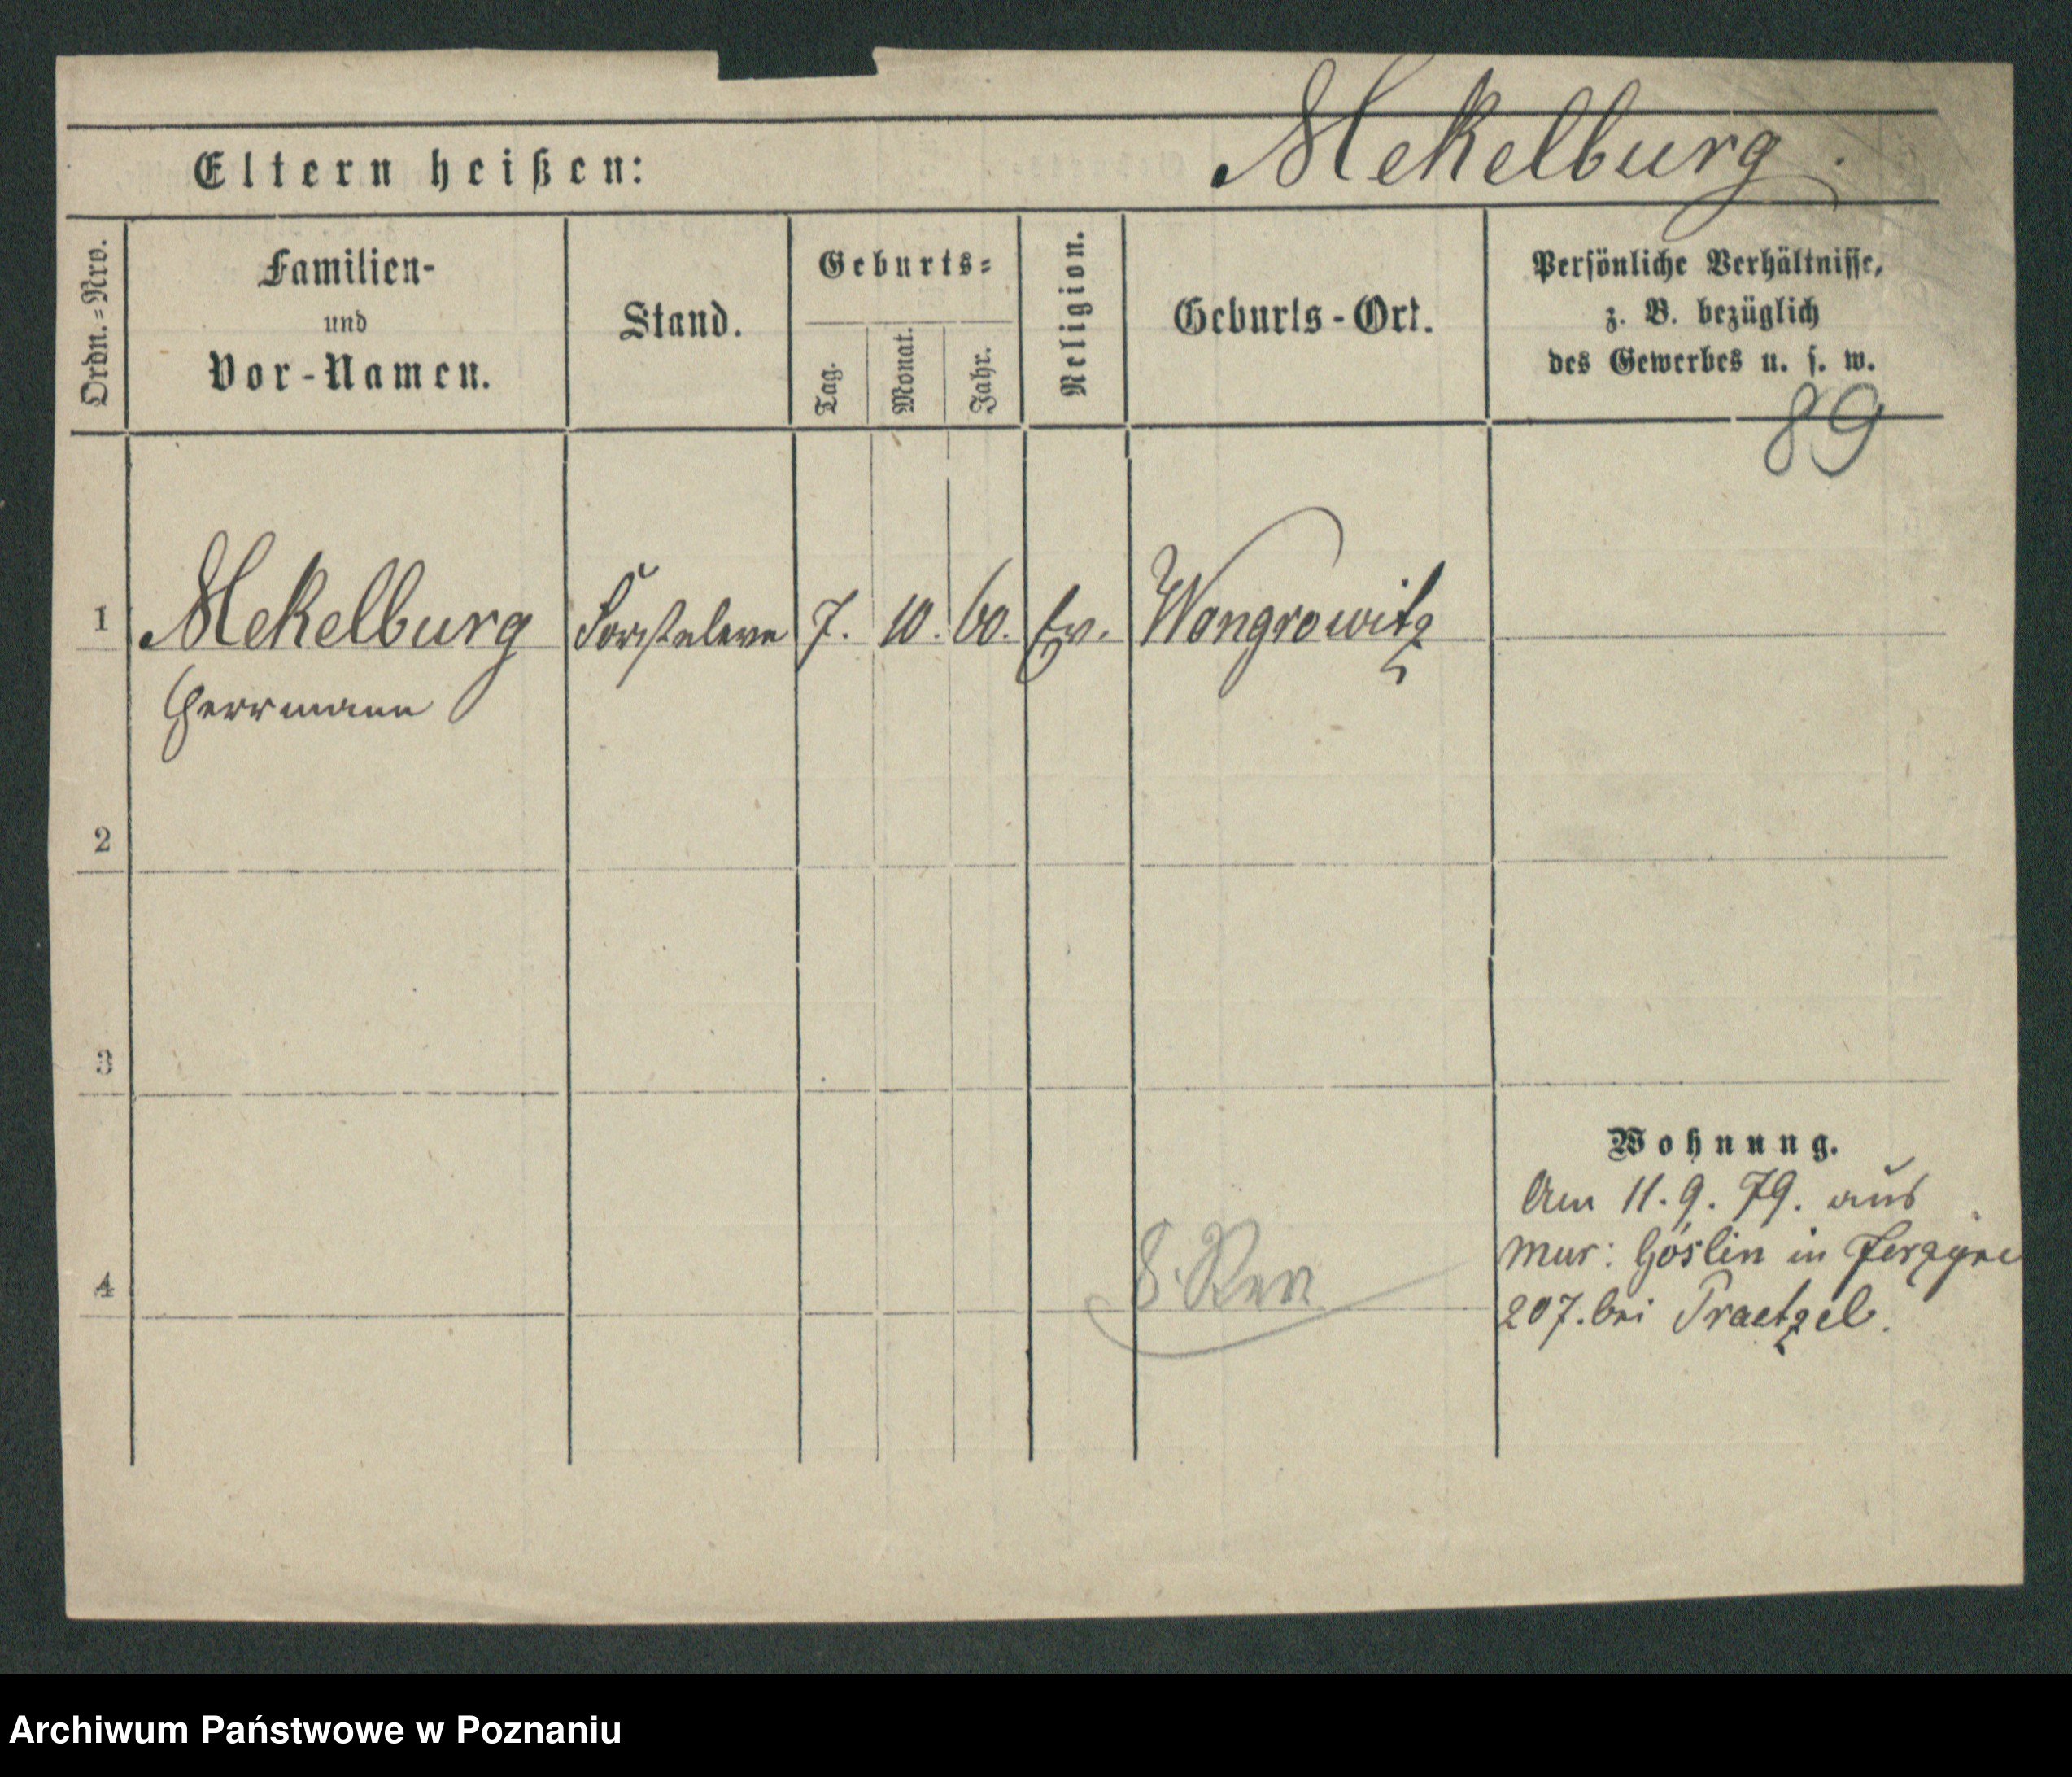 Mekelburg.
Eltern heißen:
Ordn.=Nro.
Familien-
und
Vor-Namen.
Stand.
Geburts=
Tag.
Monat.
Jahr.
Religion.
Geburts-Ort.
Persönliche Verhältnisse,
z. B. bezüglich
des Gewerbes u. s. w.
89
1 Mekelburg Forsteleve 7. 10. 60. Ev. Wongrowitz
Herrmann
2
3
Wohnung.
Am 11. 9. 79. aus
Mur: Goslin in Jerzyce
4
207. bei Praetzel.
Archiwum Państwowe w Poznaniu